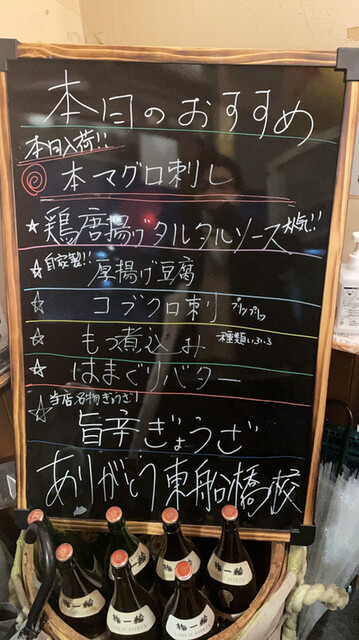 本日のおすすめ
本日入荷!!
本マグロ刺し
★鶏唐揚げタルタルソース 人気!!
☆自家製!! 厚揚げ豆腐
☆コブクロ刺 プリップリッ
☆もつ煮込み 種類いろいろ
☆はまぐりバター
☆当店名物ぎょうざ!
旨辛ぎょうざ
ありがとう東船橋校
梅一輪
梅一輪
梅一輪
梅一輪